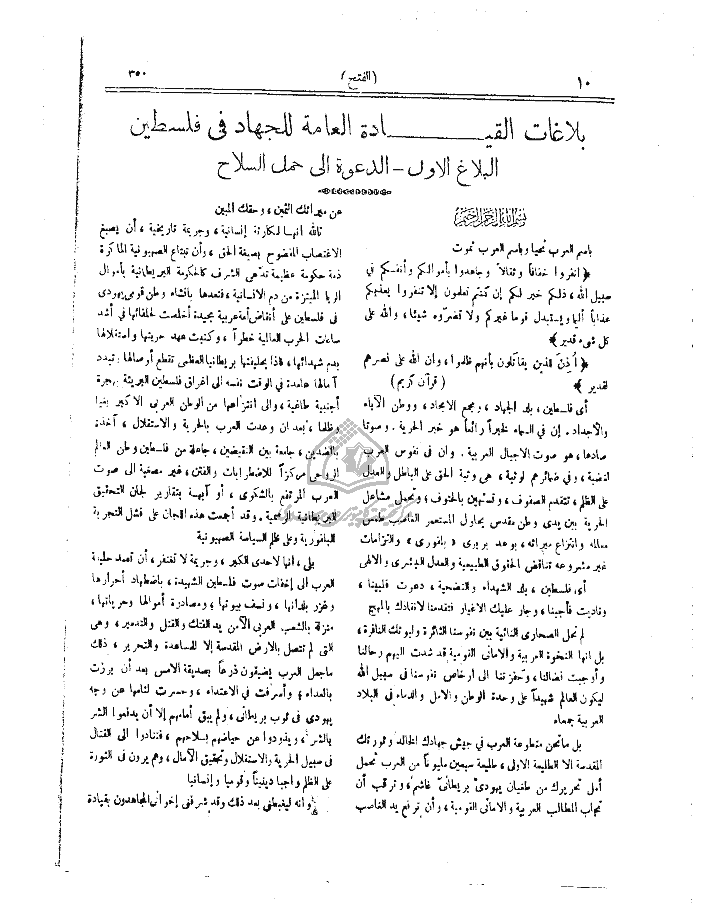 ١٠
(الفتح)
٣٥٠
بلاغات القيـــــادة العامة للجهاد فى فلسطين
البلاغ الاول - الدعوة الى حمل السلاح
بسم الله الرحمن الرحيم
باسم العرب نحيا وباسم العرب نموت
﴿ انفروا خفافاً وثقالاً وجاهدوا بأموالكم وأنفسكم في
سبيل الله ، ذلكم خير لكم إن كنتم تعلمون إلا تنفروا يعذبكم
عذاباً أليما ويستبدل قوما غيركم ولا تضروه شيئا ، والله على
كل شىء قدير ﴾
﴿ أذن للذين يقاتلون بأنهم ظلموا ، وان الله على نصرهم
لقدير ﴾ ( قرآن كريم )
أى فلسطين ، بلد الجهاد ، ومجمع الامجاد ، ووطن الآباء
والأجداد . إن في السماء لخبراً رائعاً هو خبر الحرية . وصوتا
صادها ، هو صوت الاجيال العربية . وان فى نفوس العرب
لغضبة ، وفى ضمائرهم لوثبة ، هى وثبة الحق على الباطل والعدل
على الظلم ، تتقدم الصفوف ، وتستهين بالحتوف ، وتحمل مشاعل
الحرية بين يدى وطن مقدس يحاول المستعمر الغاصب طمس
معالمه وانتزاع ميراثه ، بوعد بربرى « بلفورى » والتزامات
غير مشروعه تناقض الحقوق الطبيعية والعدل البشرى والالهى
أى فلسطين ، بلد الشهداء والتضحية ، دعوت فلبينا ،
وناديت فأجبنا ، وجار عليك الاغيار فتقدمنا لانقاذك بالمهج
لم تحل الصحارى النائية بين نفوسنا الثائرة وابوتك النافرة ،
بل انها النخوة العربية والامانى القومية قد شدت اليهم رحالنا
وأوجبت نضالنا ، وحفزتنا الى ارخاص نفوسنا فى سبيل الله
ليكون العالم شهيداً على وحدة الوطن والامل والدماء فى البلاد
العربية جمعاء
بل مانحن متطوعة العرب في جيش جهادك الخالد وثورتك
المقدسة الا الطليعة الاولى ، طليعة سبعين مليوناً من العرب تحمل
أمل تحريرك من طغيان يهودىّ بريطانىّ غاشم ، وترقب أن
تجاب المطالب العربية والامانى القومية ، وأن ترتفع يد الغاصب
عن ميراثك الثمين ، وحقك المبين
تالله انها لكارثة إنسانية ، وجريمة تاريخية ، أن يصبغ
الاغتصاب المفضوح بصبغة الحق ، وأن تبتاع الصهيونية الماكرة
ذمة حكومة عظيمة تدّعى الشرف كالحكومة البريطانية بأموال
الربا المبتزة من دم الانسانية ، فتعدها بانشاء وطن قومى يهودى
فى فلسطين على أنقاض أمة عربية مجيدة أخلصت لحلفائها في أشد
ساعات الحرب العالمية خطراً ، وكتبت عهد حريتها واستقلالها
بدم شهدائها ، فاذا بحليفتها بريطانيا العظمى تقطع أوصالها ، وتبدد
آمالها عامدة في الوقت نفسه الى اغراق فلسطين البريئة بهجرة
أجنبية طاغية ، والى انتزاعها من الوطن العربى الاكبر بغيا
وظلما ، بعد ان وعدت العرب بالحرية والاستقلال ، آخذة
بالضدين ، جامعة بين النقيضين ، جاعلة من فلسطين وطن العالم
الروحى مركزاً للاضطرابات والفتن ، غير مصغية الى صوت
العرب المرتفع بالشكوى ، أو آبهة بتقارير لجان التحقيق
البريطانية الرسمية . وقد أجمعت هذه اللجان على فشل التجربة
البلفورية وعلى ظلم السياسة الصهيونية
بلى ، انها لاحدى الكبر ، وجريمة لا تغتفر ، أن تعمد حليفة
العرب الى إخفات صوت فلسطين الشهيدة ، باضطهاد أحرارها
وغزو بلدانها ، ونسف بيوتها ، ومصادرة أموالها وحرياتها ،
منزلة بالشعب العربى الآمن يد الفتك والقتل والتدمير ، وهى
التى لم تتصل بالارض المقدسة إلا للمساعدة والتحرير ، ذلك
ماجعل العرب يضيقون ذرعاً بصديقة الامس بعد أن برزت
بالعداء ، وأسرفت في الاعتداء ، وحسرت لثامها عن وجه
يهودى فى ثوب بريطانى ، ولم يبق أمامهم إلا أن يدفعوا الشر
بالشر ، ويذودوا عن حياضهم بسلاحهم ، فتنادوا الى القتال
فى سبيل الحرية والاستقلال وتحقيق الآمال ، وهم يرون فى الثورة
على الظلم واجبا دينياً وقوميا وإنسانيا
وانه ليغبطنى بعد ذلك وقد شرفنى إخوانى المجاهدون بقيادة